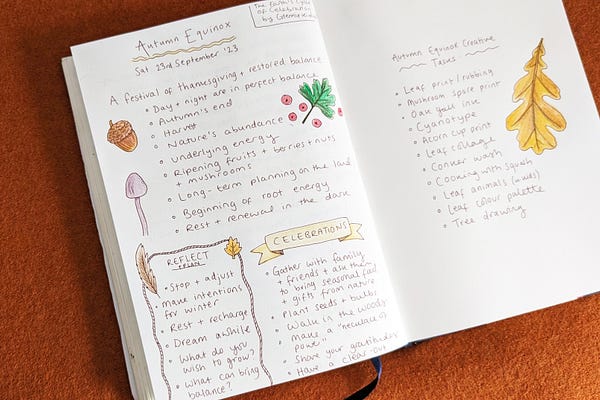 Autumn Equinox
Sat 23rd September '23
The Earth's Cycle
of Celebration
by Glennie Kindred
A festival of thanksgiving + restored balance
• Day + night are in perfect balance
• Autumn's end
• Harvest
• Nature's abundance
• Underlying energy
• Ripening fruits + berries + nuts
+ mushrooms
• Long-term planning on the land
• Beginning of root energy
• Rest + renewal in the dark
REFLECT
+ PLAN
• Stop + adjust
• make intentions
for winter
• Rest + recharge
• Dream awhile
• What do you
wish to grow?
• What can bring
balance?
CELEBRATIONS
• Gather with family
+ friends + ask them
to bring seasonal food
+ gifts from nature
• Plant seeds + bulbs
• Walk in the woods
make a "necklace of
power"
• Share your gratitudes
• Have a clear-out
Autumn Equinox Creative
Tasks
• Leaf print / rubbing
• Mushroom spore print
• Oak gall ink
• Cyanotype
• Acorn cup print
• Leaf collage
• Conker wash
• Cooking with squash
• Leaf animals (kids)
• Leaf colour palette
• Tree drawing